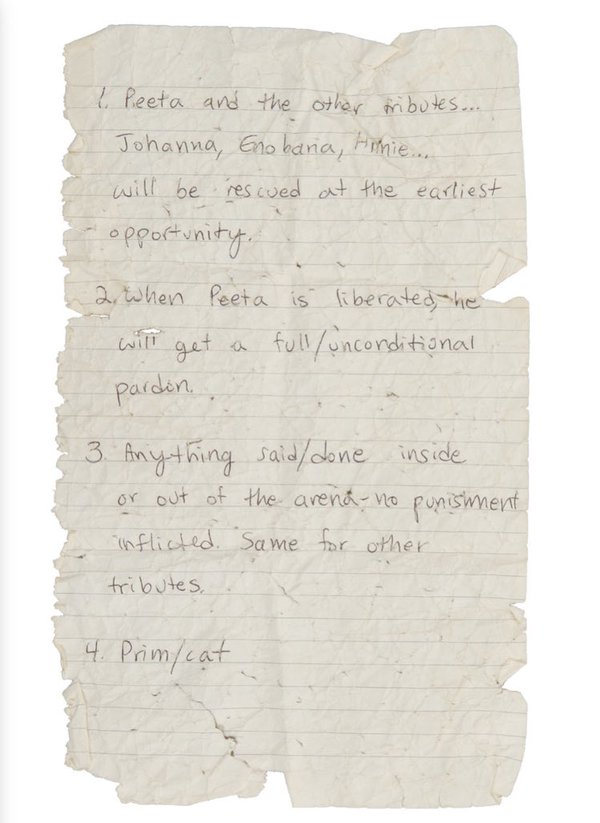 1. Peeta and the other tributes...
Johanna, Enobaria,
will be rescued at the earliest
opportunity.
2. When Peeta is liberated, he
will get a full/unconditional
pardon.
3. Anything said/done inside
or out of the arena-no punishment
inflicted. Same for other
tributes.
4. Prim/cat